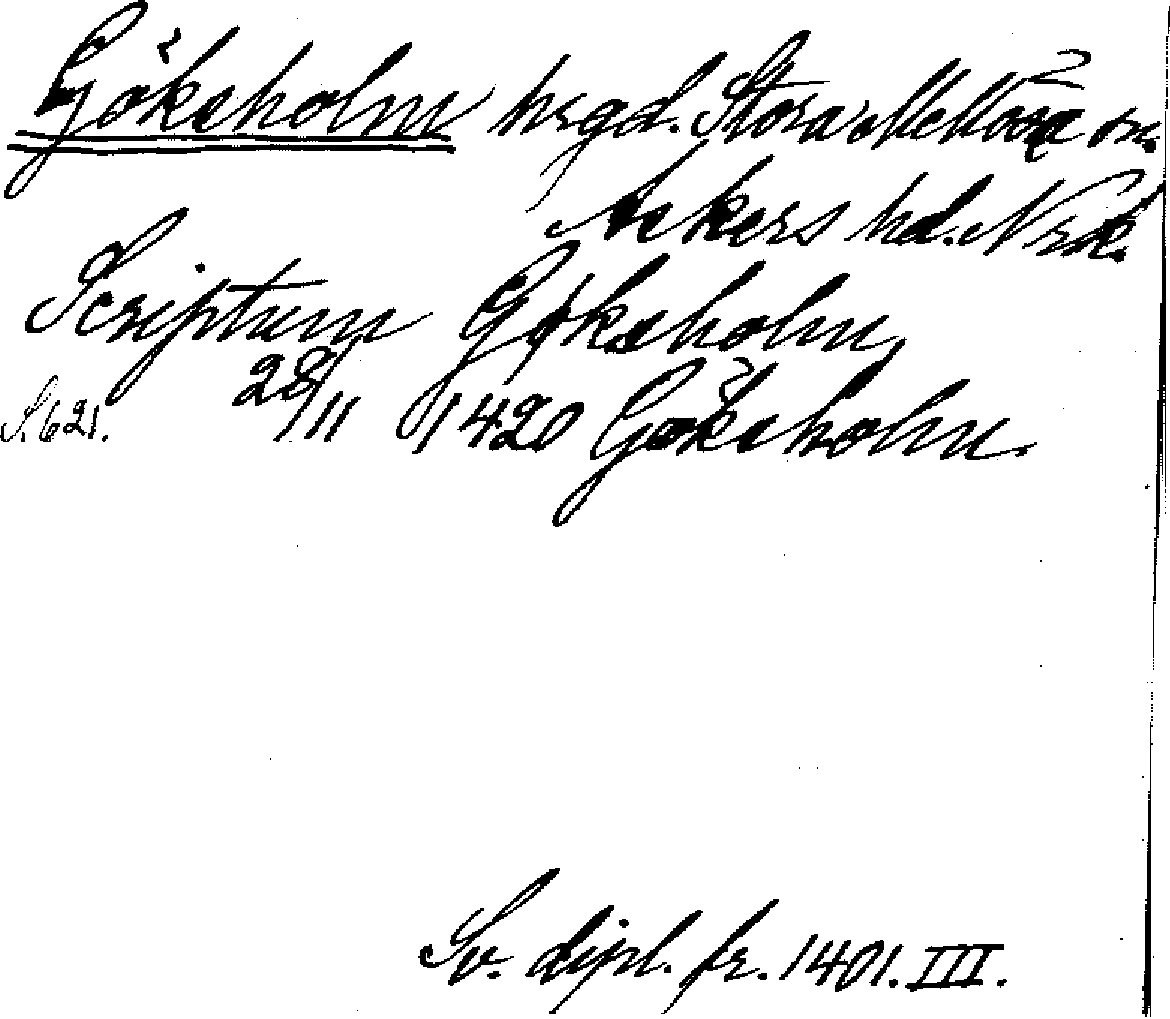 Göksholm hrgd. Stora Mellösa sn.
Askers hd. Nrk.
Scriptum Gøksholm,
S. 621. 28/11 1420 Göksholm.
Sv. dipl. fr. 1401. III.